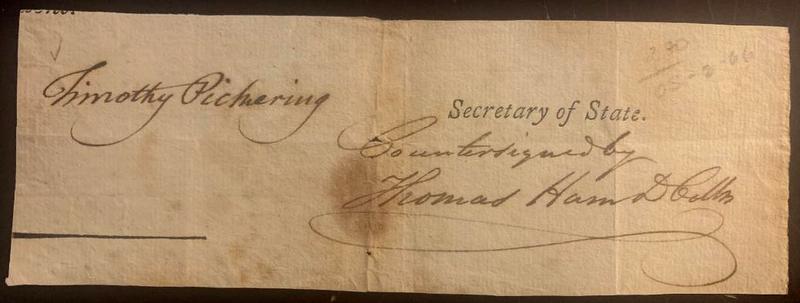 Timothy Pickering
Secretary of State.
Countersigned by
Thomas Ham D Collr